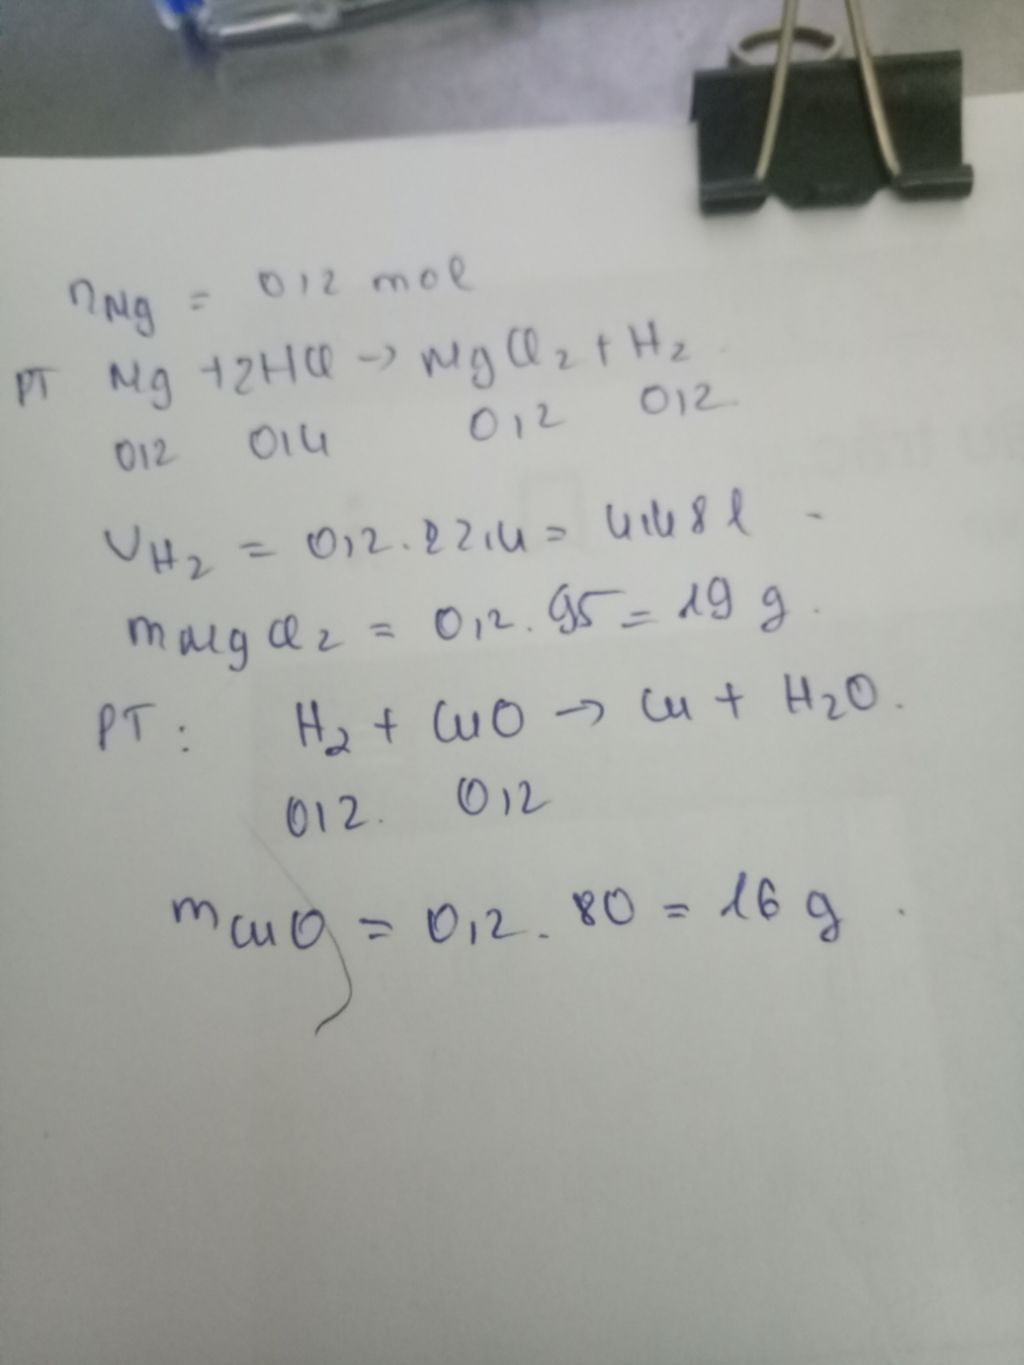 nMg = 0,2 mol
PT Mg + 2HCl -> MgCl2 + H2
0,2 0,4 0,2 0,2
VH2 = 0,2 . 22,4 = 4,48 l
mMgCl2 = 0,2 . 95 = 19 g.
PT : H2 + CuO -> Cu + H2O.
0,2. 0,2
mCuO = 0,2 . 80 = 16 g .